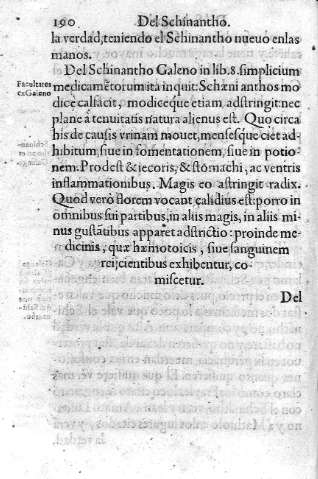 190 Del Schinantho.
la verdad, teniendo el Schinantho nueuo enlas
manos.
Del Schinantho Galeno in lib. 8. simplicium
Facultates
ex Galeno
medicamẽtorum ita inquit. Schæni anthos mo
dice calfacit, modiceque etiam, adstringit: nec
planè a tenuitatis natura alienus est. Quo circa
his de causis vrinam mouet, mensesque ciet ad-
hibitum, siue in fomentationem, siue in potio-
nem. Prodest & iecoris, & stomachi, ac ventris
inflammationibus. Magis eo astringit radix.
Quod verò florem vocant, calidius est: porro in
omnibus sui partibus, in aliis magis, in aliis mi-
nus gustãtibus apparet adstrictio: proinde me-
dicinis, quæ hæmotoicis, siue sanguinem
reijcientibus exhibentur, co-
miscetur.
Del